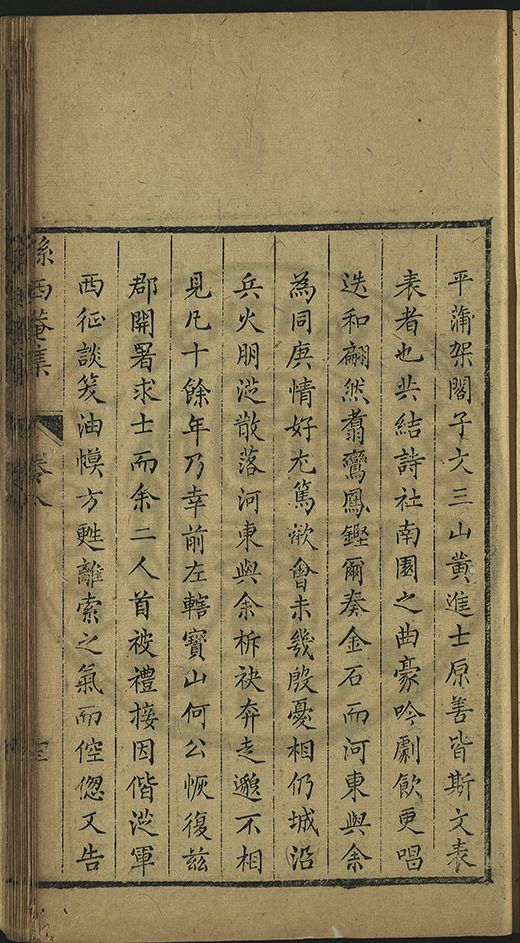 平蒲架閣子文三山黃進士原善皆斯文表
表者也共結詩社南園之曲豪吟劇飲更唱
迭和翩然翥鸞鳳鏗爾奏金石而河東與余
為同庚情好尤篤歡會未幾殷憂相仍城沿
兵火朋從散落河東與余柝袂奔走邈不相
見凡十餘年乃幸前左轄寶山何公恢復茲
郡開署求士而余二人首被禮接因偕從軍
西征談笑油幙方甦離索之氣而倥偬又告
孫西菴集 卷八